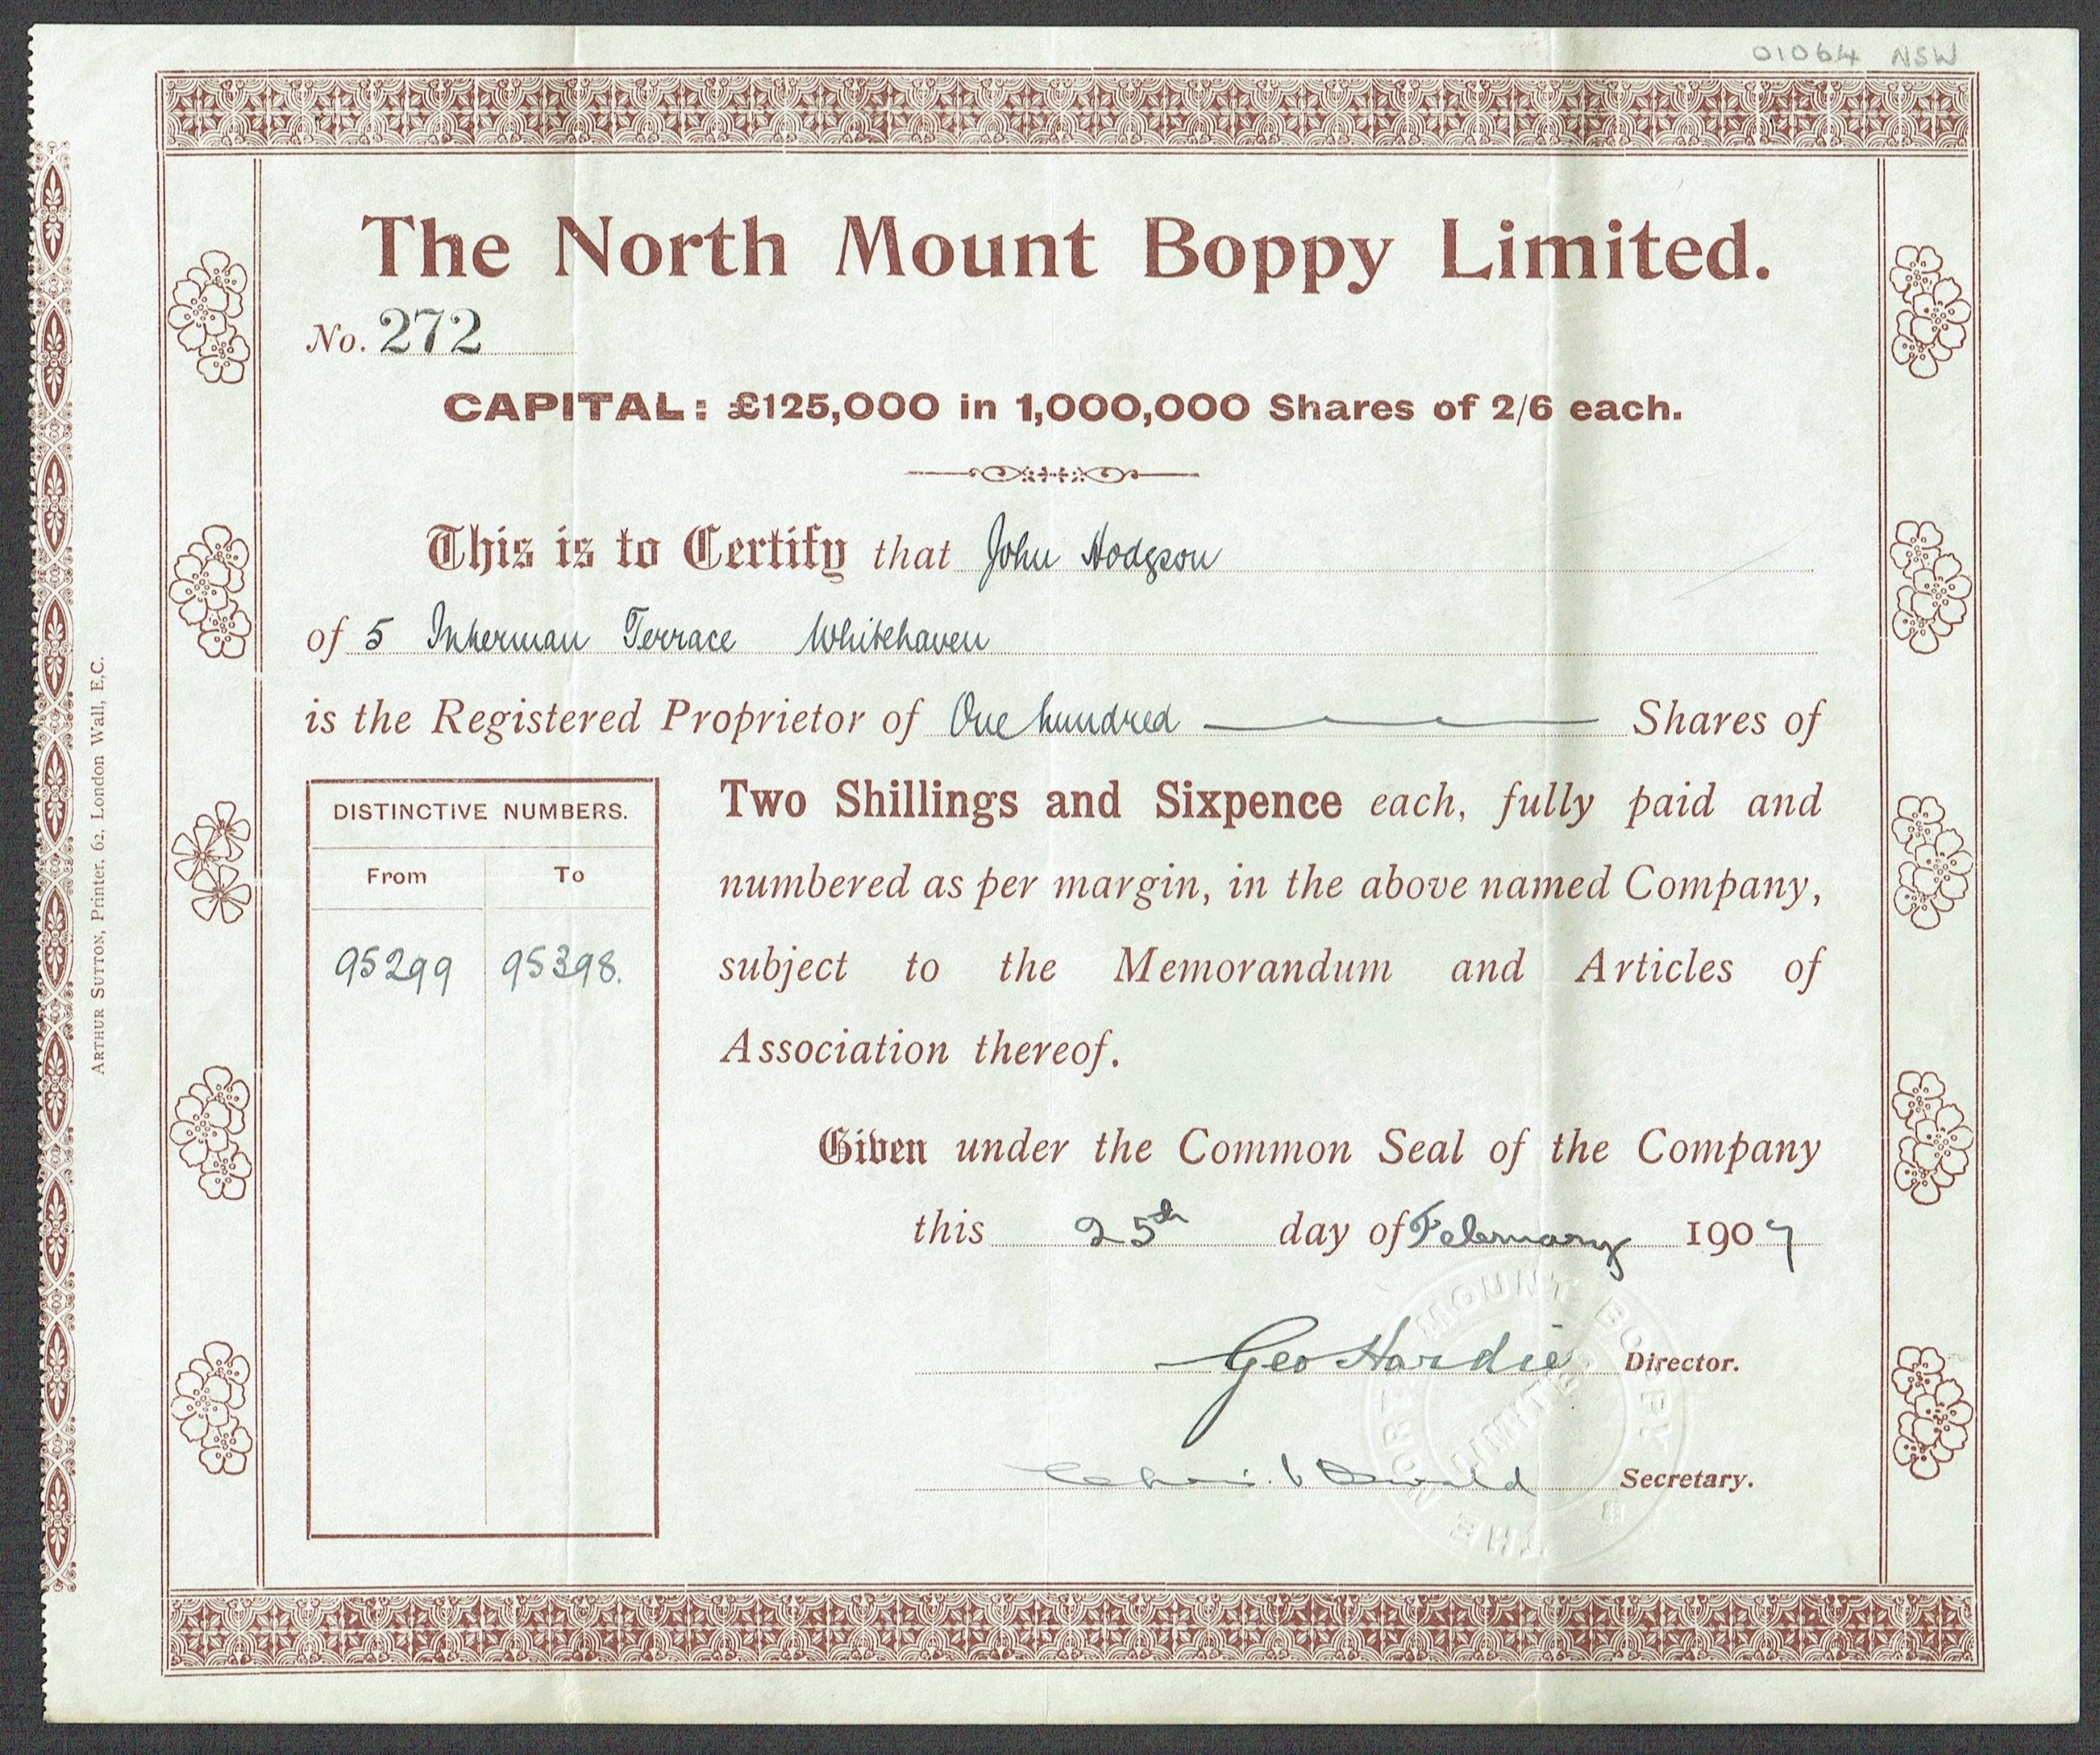 01064 NSW
The North Mount Boppy Limited.
No. 272
CAPITAL: £125,000 in 1,000,000 Shares of 2/6 each.
This is to Certify that John Hodgson
of 5 Inkerman Terrace Whitehaven
is the Registered Proprietor of One hundred Shares of
Two Shillings and Sixpence each, fully paid and
numbered as per margin, in the above named Company,
subject to the Memorandum and Articles of
Association thereof.
DISTINCTIVE NUMBERS.
From To
95299 95398.
Given under the Common Seal of the Company
this 25th day of February 1907
Geo Hardie Director.
Secretary.
THE NORTH MOUNT BOPPY
LIMITED
ARTHUR SUTTON, Printer, 62, London Wall, E.C.